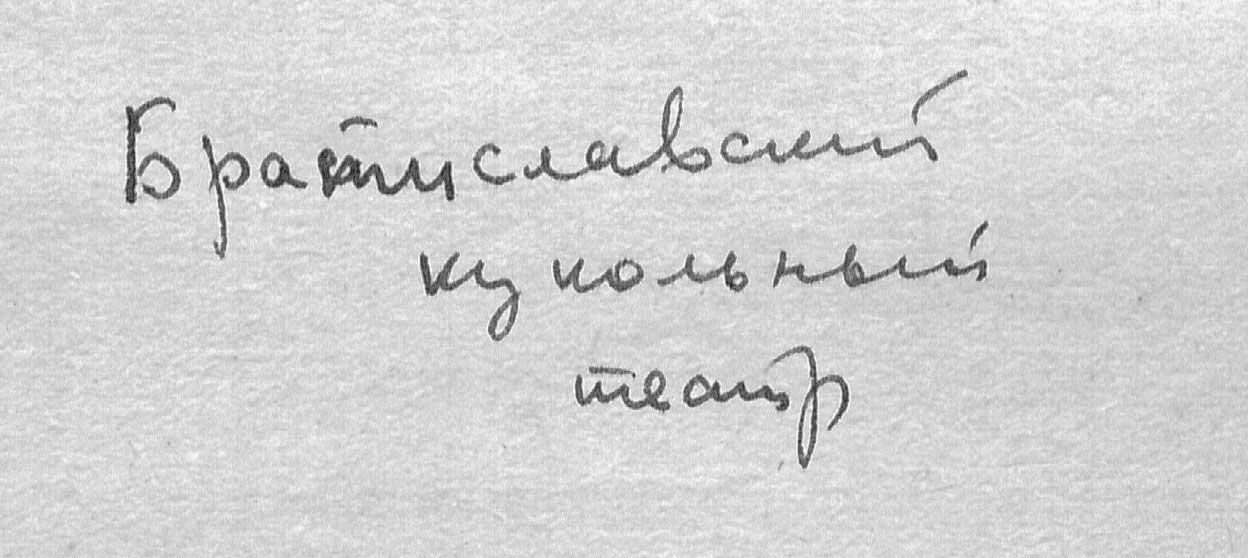 Братиславский
кукольный
театр